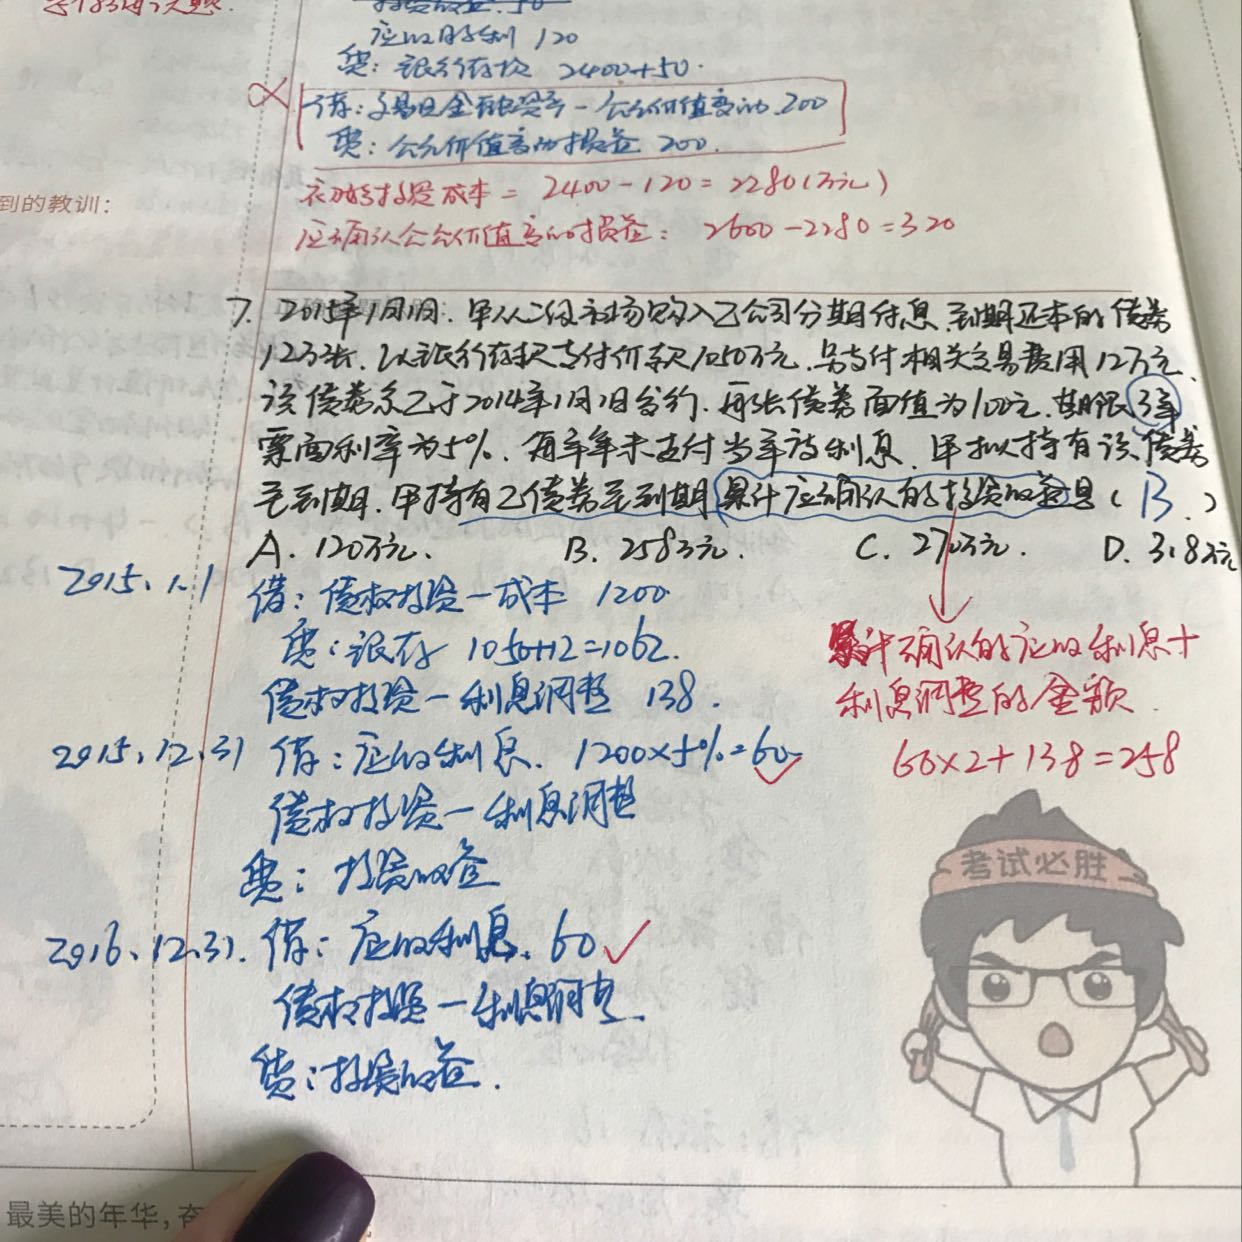 应收股利 120
贷：银行存款 2400+50.
借：交易性金融资产－公允价值变动 200
贷：公允价值变动损益 200.
初始投资成本 = 2400-120=2280(万元)
到的教训：
应确认公允价值变动损益：2600-2280=320
7. 2015年1月1日，甲从二级市场购入乙公司分期付息、到期还本的债券
12万张，以银行存款支付价款1050万元，另支付相关交易费用12万元.
该债券系乙于2014年1月1日发行，每张债券面值为100元，期限3年
票面利率为5%，每年年末支付当年度利息，甲拟持有该债券
至到期，甲持有乙债券至到期累计应确认的投资收益是（B.）
A. 120万元. B. 258万元. C. 270万元. D. 318万元
2015.1.1 借：债权投资－成本 1200
贷：银存 1050+12=1062.
债权投资－利息调整 138.
累计确认的应收利息+
利息调整的金额.
60×2+138=258
2015.12.31 借：应收利息. 1200×5%=60
债权投资－利息调整
贷：投资收益
考试必胜
2016.12.31. 借：应收利息. 60
债权投资－利息调整
贷：投资收益.
最美的年华，奋